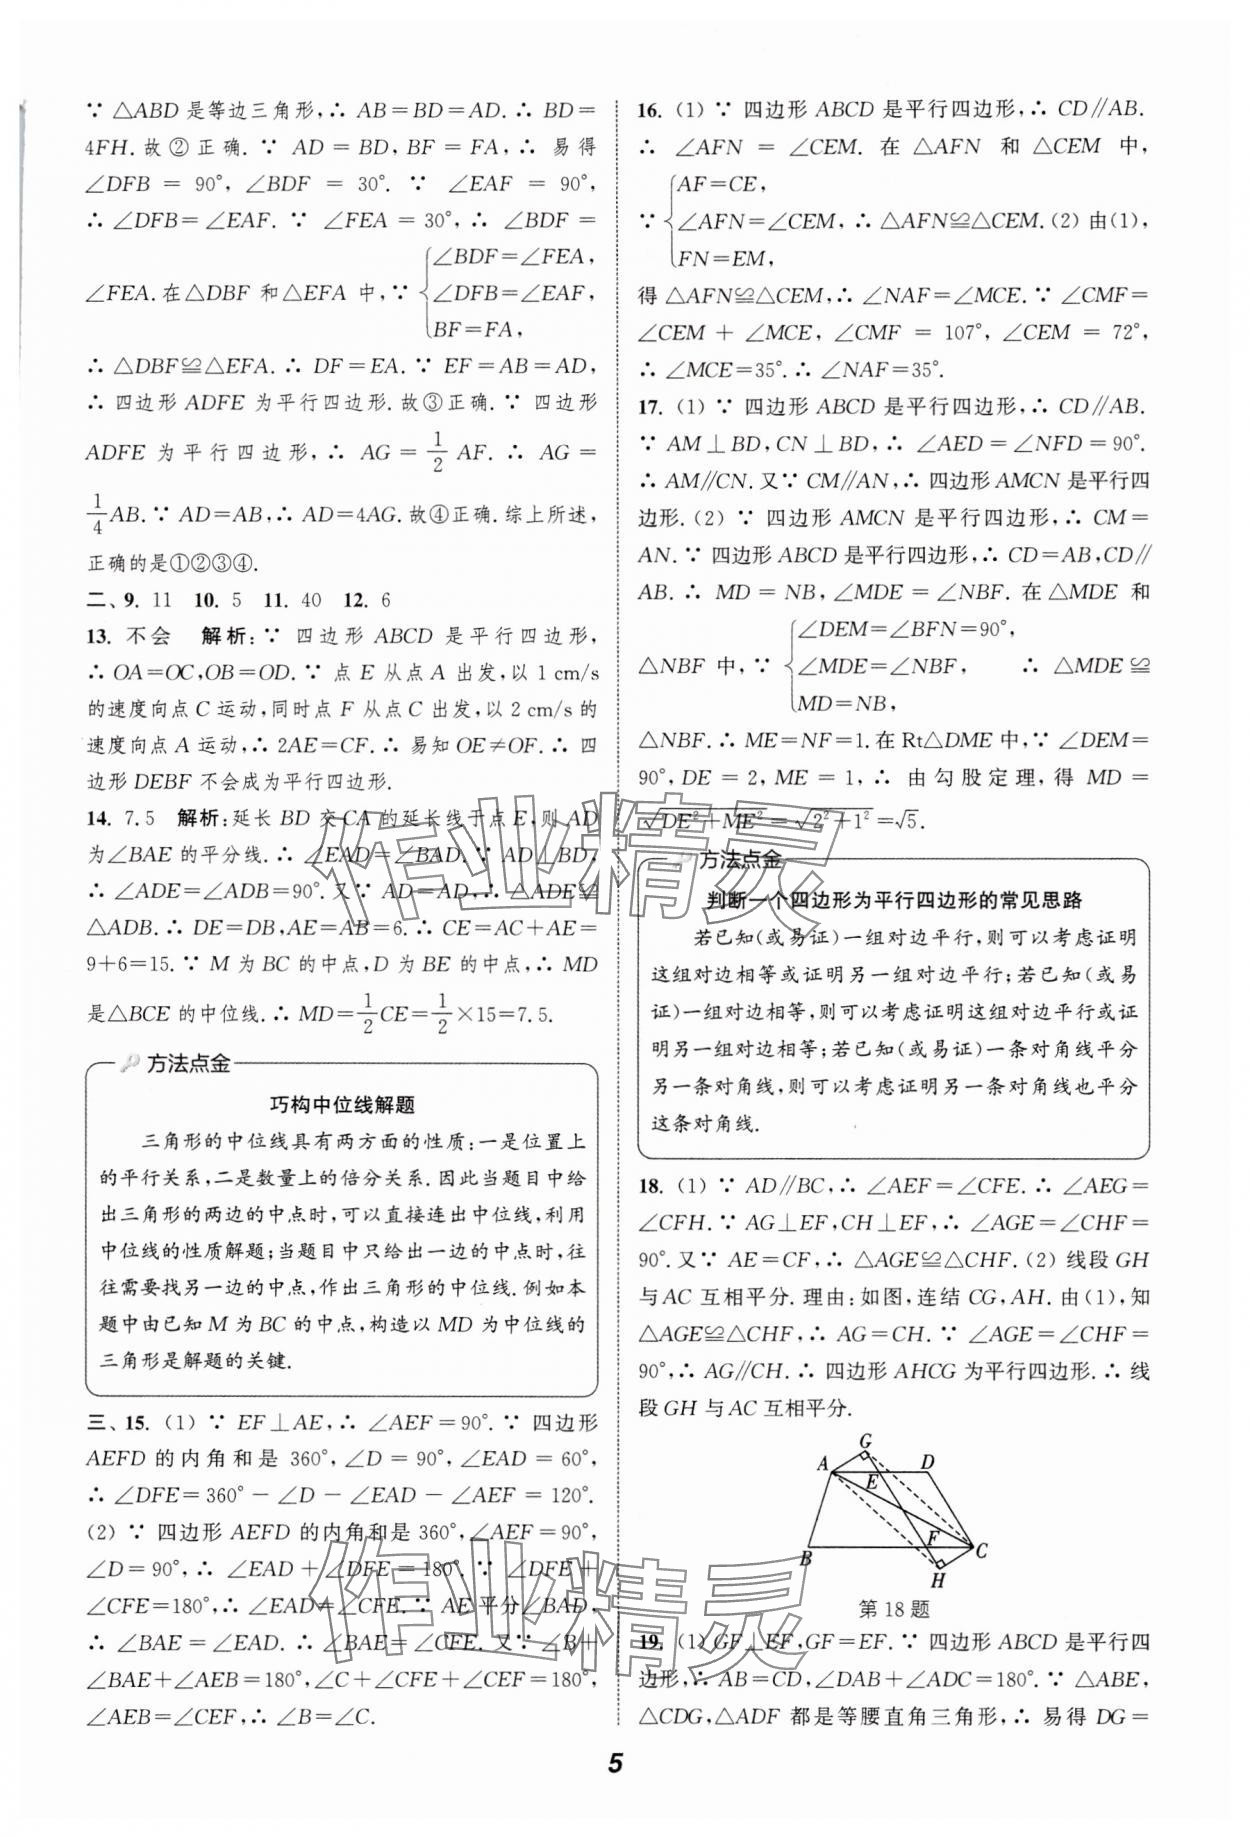 ∵ △ABD 是等边三角形,∴ AB=BD=AD.∴ BD=
4FH.故②正确.∵ AD=BD,BF=FA,∴ 易得
∠DFB = 90°,∠BDF = 30°.∵ ∠EAF = 90°,
∴ ∠DFB=∠EAF.∵ ∠FEA=30°,∴ ∠BDF=
∠BDF=∠FEA,
∠FEA.在△DBF 和△EFA 中,∵ ∠DFB=∠EAF,
BF=FA,
∴ △DBF≌△EFA.∴ DF=EA.∵ EF=AB=AD,
∴ 四边形 ADFE 为平行四边形.故③正确.∵ 四边形
ADFE 为平行四边形,∴ AG=1/2 AF.∴ AG=
1/4AB.∵ AD=AB,∴ AD=4AG.故④正确.综上所述,
正确的是①②③④.
二、9. 11 10. 5 11. 40 12. 6
13. 不会 解析:∵ 四边形 ABCD 是平行四边形,
∴ OA=OC,OB=OD.∵ 点 E 从点 A 出发,以 1 cm/s
的速度向点 C 运动,同时点 F 从点 C 出发,以 2 cm/s 的
速度向点 A 运动,∴ 2AE=CF.∴ 易知 OE≠OF.∴ 四
边形 DEBF 不会成为平行四边形.
14. 7.5 解析:延长 BD 交 CA 的延长线于点 E,则 AD
为∠BAE 的平分线.∴ ∠EAD=∠BAD.∵ AD⊥BD,
∴ ∠ADE=∠ADB=90°.又∵ AD=AD,∴ △ADE≌
△ADB.∴ DE=DB,AE=AB=6.∴ CE=AC+AE=
9+6=15.∵ M 为 BC 的中点,D 为 BE 的中点,∴ MD
是△BCE 的中位线.∴ MD=1/2CE=1/2×15=7.5.
方法点金
巧构中位线解题
三角形的中位线具有两方面的性质:一是位置上
的平行关系,二是数量上的倍分关系.因此当题目中给
出三角形的两边的中点时,可以直接连出中位线,利用
中位线的性质解题;当题目中只给出一边的中点时,往
往需要找另一边的中点,作出三角形的中位线.例如本
题中由已知 M 为 BC 的中点,构造以 MD 为中位线的
三角形是解题的关键.
三、15. (1) ∵ EF⊥AE,∴ ∠AEF=90°.∵ 四边形
AEFD 的内角和是 360°,∠D=90°,∠EAD=60°,
∴ ∠DFE=360°-∠D-∠EAD-∠AEF=120°.
(2) ∵ 四边形 AEFD 的内角和是 360°,∠AEF=90°,
∠D=90°,∴ ∠EAD+∠DFE=180°.∵ ∠DFE+
∠CFE=180°,∴ ∠EAD=∠CFE.∵ AE 平分∠BAD,
∴ ∠BAE=∠EAD.∴ ∠BAE=∠CFE.又∵ ∠B+
∠BAE+∠AEB=180°,∠C+∠CFE+∠CEF=180°,
∠AEB=∠CEF,∴ ∠B=∠C.
16. (1) ∵ 四边形 ABCD 是平行四边形,∴ CD∥AB.
∴ ∠AFN = ∠CEM. 在 △AFN 和 △CEM 中,
AF=CE,
∵ ∠AFN=∠CEM,∴ △AFN≌△CEM.(2) 由(1),
FN=EM,
得 △AFN≌△CEM,∴ ∠NAF=∠MCE.∵ ∠CMF=
∠CEM + ∠MCE, ∠CMF = 107°, ∠CEM = 72°,
∴ ∠MCE=35°.∴ ∠NAF=35°.
17. (1) ∵ 四边形 ABCD 是平行四边形,∴ CD∥AB.
∵ AM⊥BD,CN⊥BD,∴ ∠AED=∠NFD=90°.
∴ AM∥CN.又∵ CM∥AN,∴ 四边形 AMCN 是平行四
边形.(2) ∵ 四边形 AMCN 是平行四边形,∴ CM=
AN.∵ 四边形 ABCD 是平行四边形,∴ CD=AB,CD∥
AB.∴ MD=NB,∠MDE=∠NBF.在△MDE 和
∠DEM=∠BFN=90°,
△NBF 中,∵ ∠MDE=∠NBF, ∴ △MDE≌
MD=NB,
△NBF.∴ ME=NF=1.在 Rt△DME 中,∵ ∠DEM=
90°,DE=2,ME=1,∴ 由勾股定理,得 MD=
√(DE²+ME²)=√(2²+1²)=√5.
方法点金
判断一个四边形为平行四边形的常见思路
若已知(或易证)一组对边平行,则可以考虑证明
这组对边相等或证明另一组对边平行;若已知(或易
证)一组对边相等,则可以考虑证明这组对边平行或证
明另一组对边相等;若已知(或易证)一条对角线平分
另一条对角线,则可以考虑证明另一条对角线也平分
这条对角线.
18. (1) ∵ AD∥BC,∴ ∠AEF=∠CFE.∴ ∠AEG=
∠CFH.∵ AG⊥EF,CH⊥EF,∴ ∠AGE=∠CHF=
90°.又∵ AE=CF,∴ △AGE≌△CHF.(2) 线段 GH
与 AC 互相平分.理由:如图,连结 CG,AH.由(1),知
△AGE≌△CHF,∴ AG=CH.∵ ∠AGE=∠CHF=
90°,∴ AG∥CH.∴ 四边形 AHCG 为平行四边形.∴ 线
段 GH 与 AC 互相平分.
G
A
E
D
F
B
C
H
第 18 题
19. (1) GF⊥EF,GF=EF.∵ 四边形 ABCD 是平行四
边形,∴ AB=CD,∠DAB+∠ADC=180°.∵ △ABE,
△CDG,△ADF 都是等腰直角三角形,∴ 易得 DG=
5
作业精灵
作业精灵